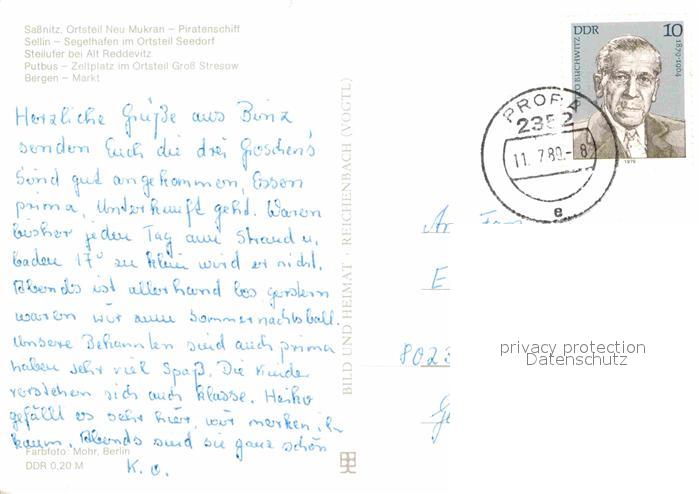 Saßnitz, Ortsteil Neu Mukran – Piratenschiff
Sellin – Segelhafen im Ortsteil Seedorf
Steilufer bei Alt Reddevitz
Putbus – Zeltplatz im Ortsteil Groß Stresow
Bergen – Markt
Herzliche Grüße aus Binz
senden Euch die drei Groschen's
Sind gut angekommen, Essen
prima, Unterkunft geht. Waren
bisher jeden Tag am Strand u.
baden 17°
Abends ist allerhand los gestern
waren wir zum Sommernachtsball.
Unsere Bekannten sind auch prima
haben sehr viel Spaß. Die Kinder
verstehen sich auch klasse. Heiko
gefällt es sehr hier, wir merken ihn
kaum. Abends sind sie ganz schön
K. o.
Farbfoto: Mohr, Berlin
DDR 0,20 M
BILD UND HEIMAT · REICHENBACH (VOGTL)
DDR 10
OTTO BUCHWITZ 1879-1964
1979
PRORA
2352
11.7.80.-8
e
8023
privacy protection
Datenschutz